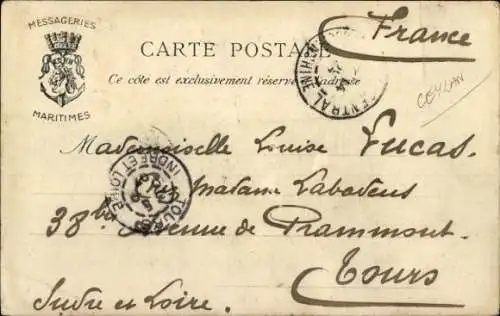 MESSAGERIES
MARITIMES
CARTE POSTALE
Ce côté est exclusivement réservé à l'adresse
France
CEYLAN
CENTRAL
Mademoiselle Louise Lucas.
Madame Labadens
38 bis Avenue de Grammont.
Tours
Indre et Loire.
TOURS
INDRE ET LOIRE